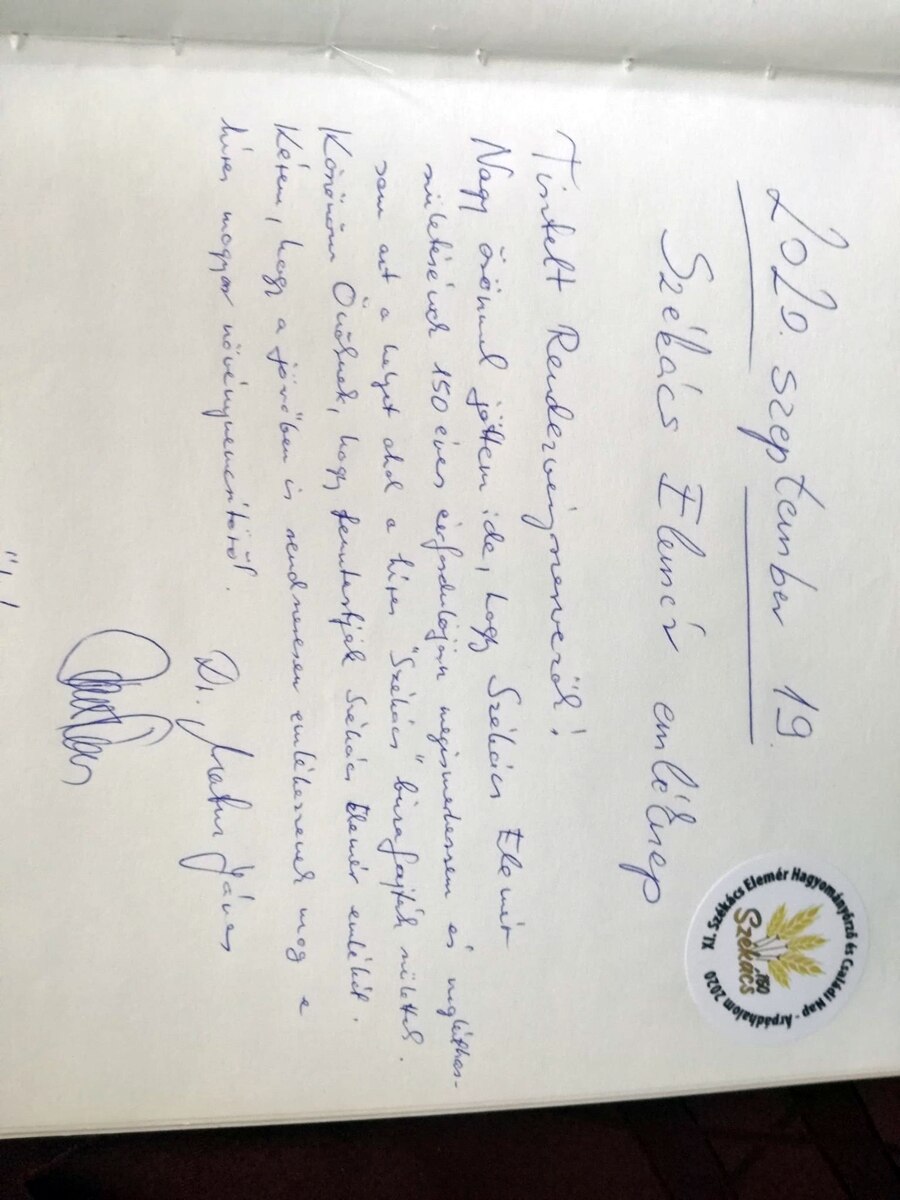 2020. szeptember 19.
Székács Elemér emléknap
Tisztelt Rendezvényszervezők!
Nagy örömmel jöttem ide, hogy Székács Elemér
születésének 150 éves évfordulóján megismerhessem és megláthas-
sam azt a helyet ahol a híres "Székács" búzafajták születtek.
Köszönöm Önöknek, hogy fenntartják Székács Elemér emlékét.
Kérem, hogy a jövőben is rendszeresen emlékezzenek meg e
híres magyar növénynemesítőről.
Dr. Matuz János
XI. Székács Elemér Hagyományőrző és Családi Nap - Árpádhalom 2020
150
Székács